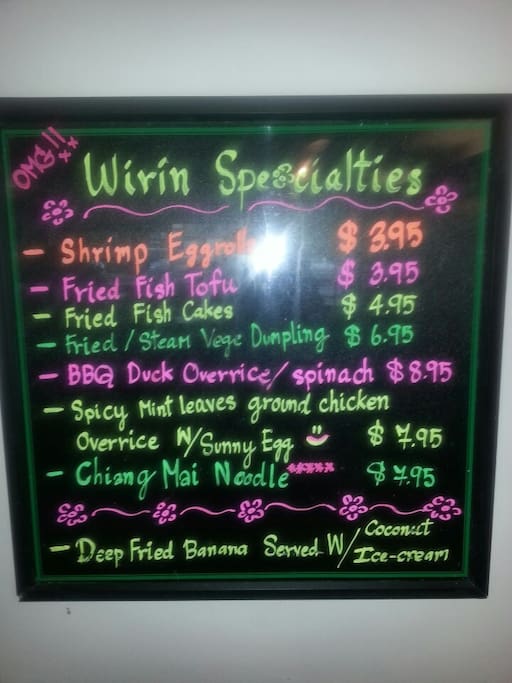 OMG!!
Wirin Specialties
- Shrimp Eggrolls $ 3.95
- Fried Fish Tofu $ 3.95
- Fried Fish Cakes $ 4.95
- Fried / Steam Vege Dumpling $ 6.95
- BBQ Duck Overrice / spinach $ 8.95
- Spicy Mint leaves ground chicken
Overrice W/ Sunny Egg $ 7.95
- Chiang Mai Noodle***** $ 7.95
- Deep Fried Banana Served W/ Coconut
Ice-cream